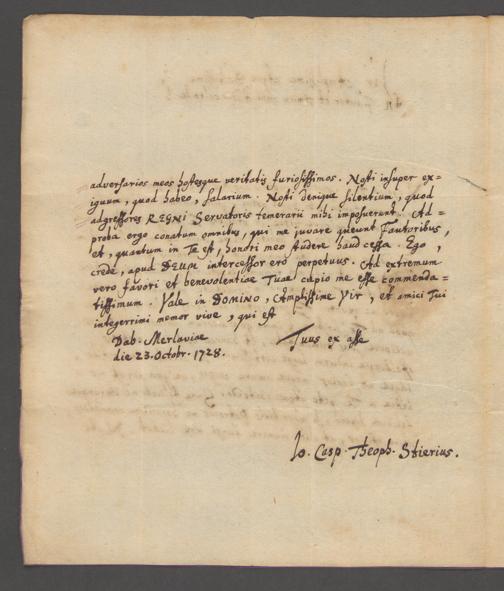 adversarios meos hostesque veritatis furiosissimos. Nosti insuper ex=
iguum, quod habeo, salarium. Nosti denique silentium, quod
adgressores REGNI Servatoris temerarii mihi imposuerunt. Ad=
proba ergo conatum omnibus, qui me juvare queunt Fautoribus,
et, quantum in Te est, honori meo studere haud cessa. Ego,
crede, apud DEUM intercessor ero perpetuus. Ad extremum
vero favori et benevolentiae Tuae cupio me esse commenda=
tissimum. Vale in DOMINO, Amplissime Vir, et amici Tui
integerrimi memor vive, qui est
Dab. Merlaviae
die 23. Octobr. 1728.
Tuus ex asse
Io. Casp. Theoph. Stierius.